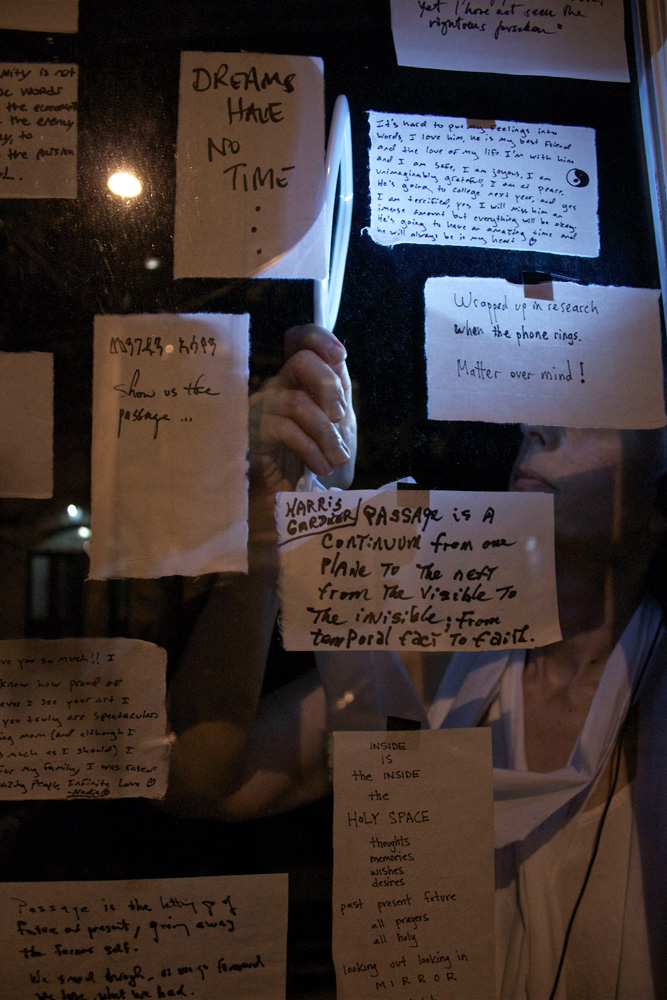 yet I have not seen the
righteous forsaken"
is not
words
the
the enemy
to
the
DREAMS
HAVE
NO
TIME
.
.
.
It's hard to put my feelings into
words, I love him, he is my best friend
and the love of my life. I'm with him
and I am safe, I am joyous, I am
unimaginably grateful, I am at peace.
He's going to college next year, and yes
I am terrified, yes I will miss him an
imense amount but everything will be okay.
He's going to have an amazing time and
he will always be in my heart ♡
Wrapped up in research
when the phone rings.
Matter over mind!
መንገዱን አሳየን
Show us the
passage ...
HARRIS
GARDNER/PASSAGE is A
CONTINUUM from one
PLANE TO The next
from The Visible To
The invisible; from
temporal fact To faith.
ve you so much!! I
know how proud of
ever I see your art I
you truly are spectacular
ing mom (and although I
as much as I should) I
for my family, I was raised
People Infinite Love ♡
-Nadia
INSIDE
IS
the INSIDE
the
HOLY SPACE
thoughts
memories
wishes
desires
past present future
all prayers
all holy
looking out looking in
MIRROR
Passage is the letting go of
future or present, giving away
the former self.
We through, as we go forward
We what we had.